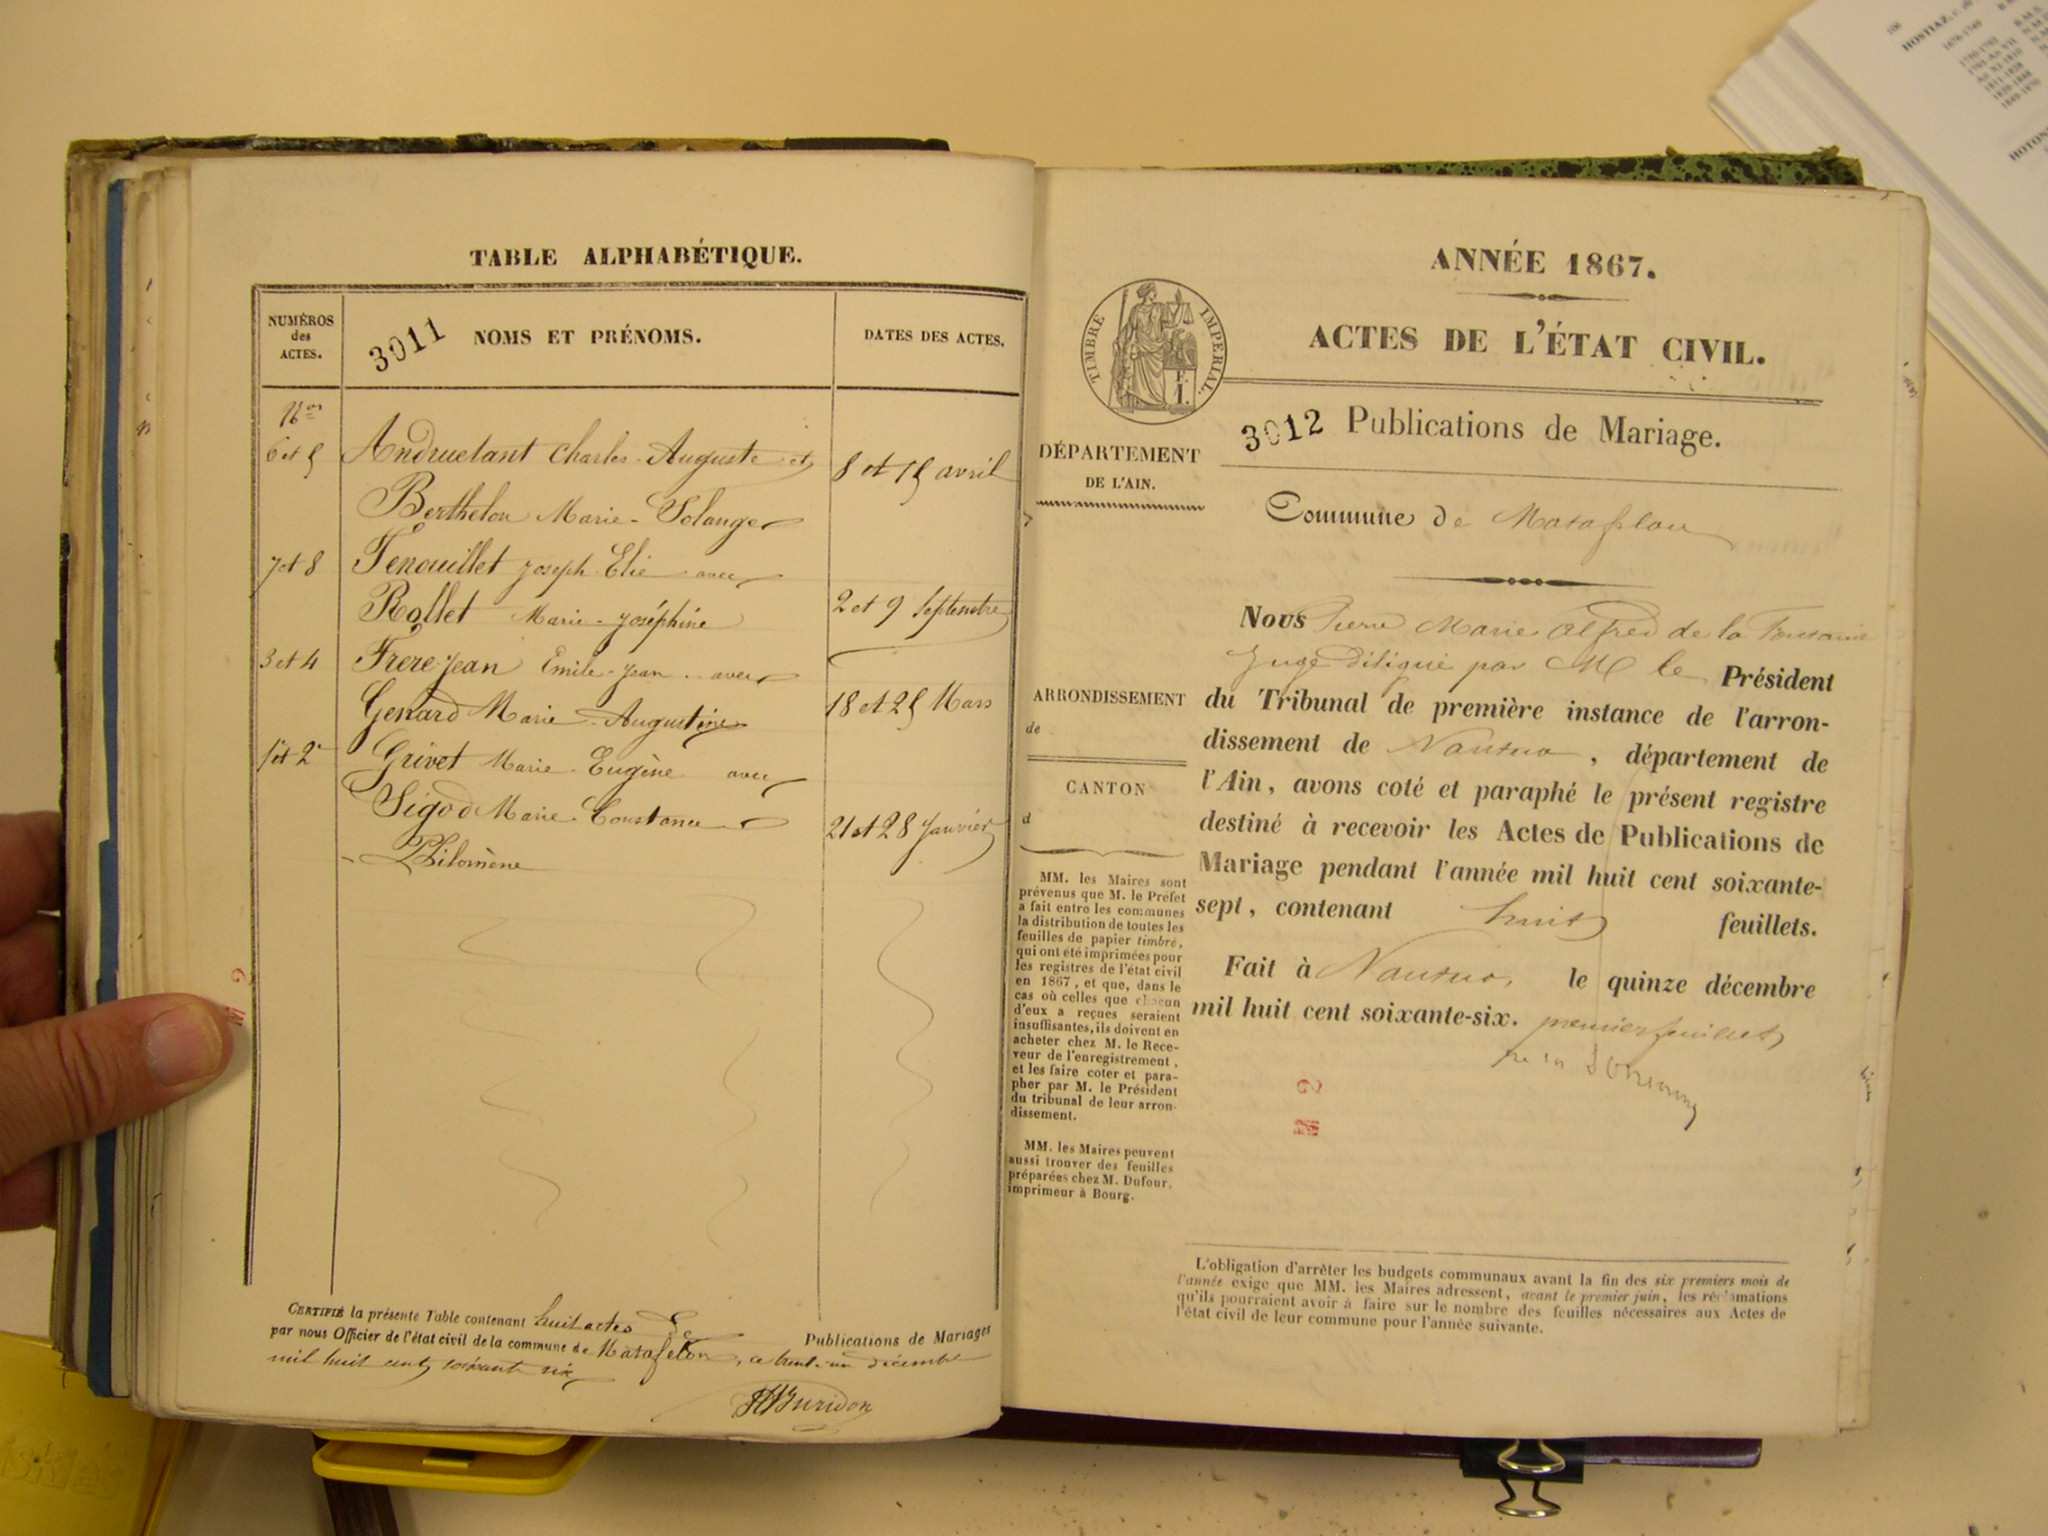 TABLE ALPHABÉTIQUE.
NUMÉROS
des
ACTES.
3011 NOMS ET PRÉNOMS.
DATES DES ACTES.
Nos
6 et 5 Andruetant Charles-Auguste et 8 et 15 avril
Berthelon Marie-Solange
7 et 8 Tenouillet Joseph Elie avec
Rollet Marie-Joséphine 2 et 9 Septembre
3 et 4 Frere jean Emile-Jean avec
Genard Marie-Augustine 18 et 25 Mars
1 et 2 Grivet Marie-Eugène avec
Sigod Marie-Constance 21 et 28 Janvier
Philomène
CERTIFIÉ la présente Table contenant huit actes de Publications de Mariages
par nous Officier de l'état civil de la commune de Matafelon, ce trente-un décembre
mil huit cent soixante six
ANNÉE 1867.
ACTES DE L'ÉTAT CIVIL.
TIMBRE IMPÉRIAL.
3012 Publications de Mariage.
DÉPARTEMENT
DE L'AIN.
Commune de Matafelon
ARRONDISSEMENT
de
CANTON
d
Nous Pierre Marie Alfred de la Fontaine
Juge délégué par M le Président
du Tribunal de première instance de l'arron-
dissement de Nantua, département de
l'Ain, avons coté et paraphé le présent registre
destiné à recevoir les Actes de Publications de
Mariage pendant l'année mil huit cent soixante-
sept, contenant huit feuillets.
Fait à Nantua, le quinze décembre
mil huit cent soixante-six. premier feuillet
MM. les Maires sont
prévenus que M. le Préfet
a fait entre les communes
la distribution de toutes les
feuilles de papier timbré,
qui ont été imprimées pour
les registres de l'état civil
en 1867, et que, dans le
cas où celles que chacun
d'eux a reçues seraient
insuffisantes, ils doivent en
acheter chez M. le Rece-
veur de l'enregistrement,
et les faire coter et para-
pher par M. le Président
du tribunal de leur arron-
dissement.
MM. les Maires peuvent
aussi trouver des feuilles
préparées chez M. Dufour,
imprimeur à Bourg.
L'obligation d'arrêter les budgets communaux avant la fin des six premiers mois de
l'année exige que MM. les Maires adressent, avant le premier juin, les réclamations
qu'ils pourraient avoir à faire sur le nombre des feuilles nécessaires aux Actes de
l'état civil de leur commune pour l'année suivante.